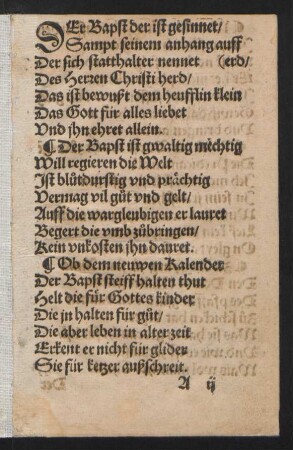 DEr Bapst der ist gesinnet/
Sampt seinem anhang auff
Der sich statthalter nennet (erd/
Des Herren Christi herd/
Das ist bewußt dem heufflin klein
Das Gott für alles liebet
Vnd jhn ehret allein.
¶ Der Bapst ist gwaltig mechtig
Will regieren die Welt
Ist blůtdurstig vnd prächtig
Vermag vil gůt vnd gelt/
Auff die wargleubigen er lauret
Begert die vmb zůbringen/
Kein vnkosten jhn dauret.
¶ Ob dem neuwen Kalender
Der Bapst steiff halten thut
Helt die für Gottes kinder
Die jn halten für gůt/
Die aber leben in alter zeit
Erkent er nicht für glider
Sie für ketzer außschreit.
A ij